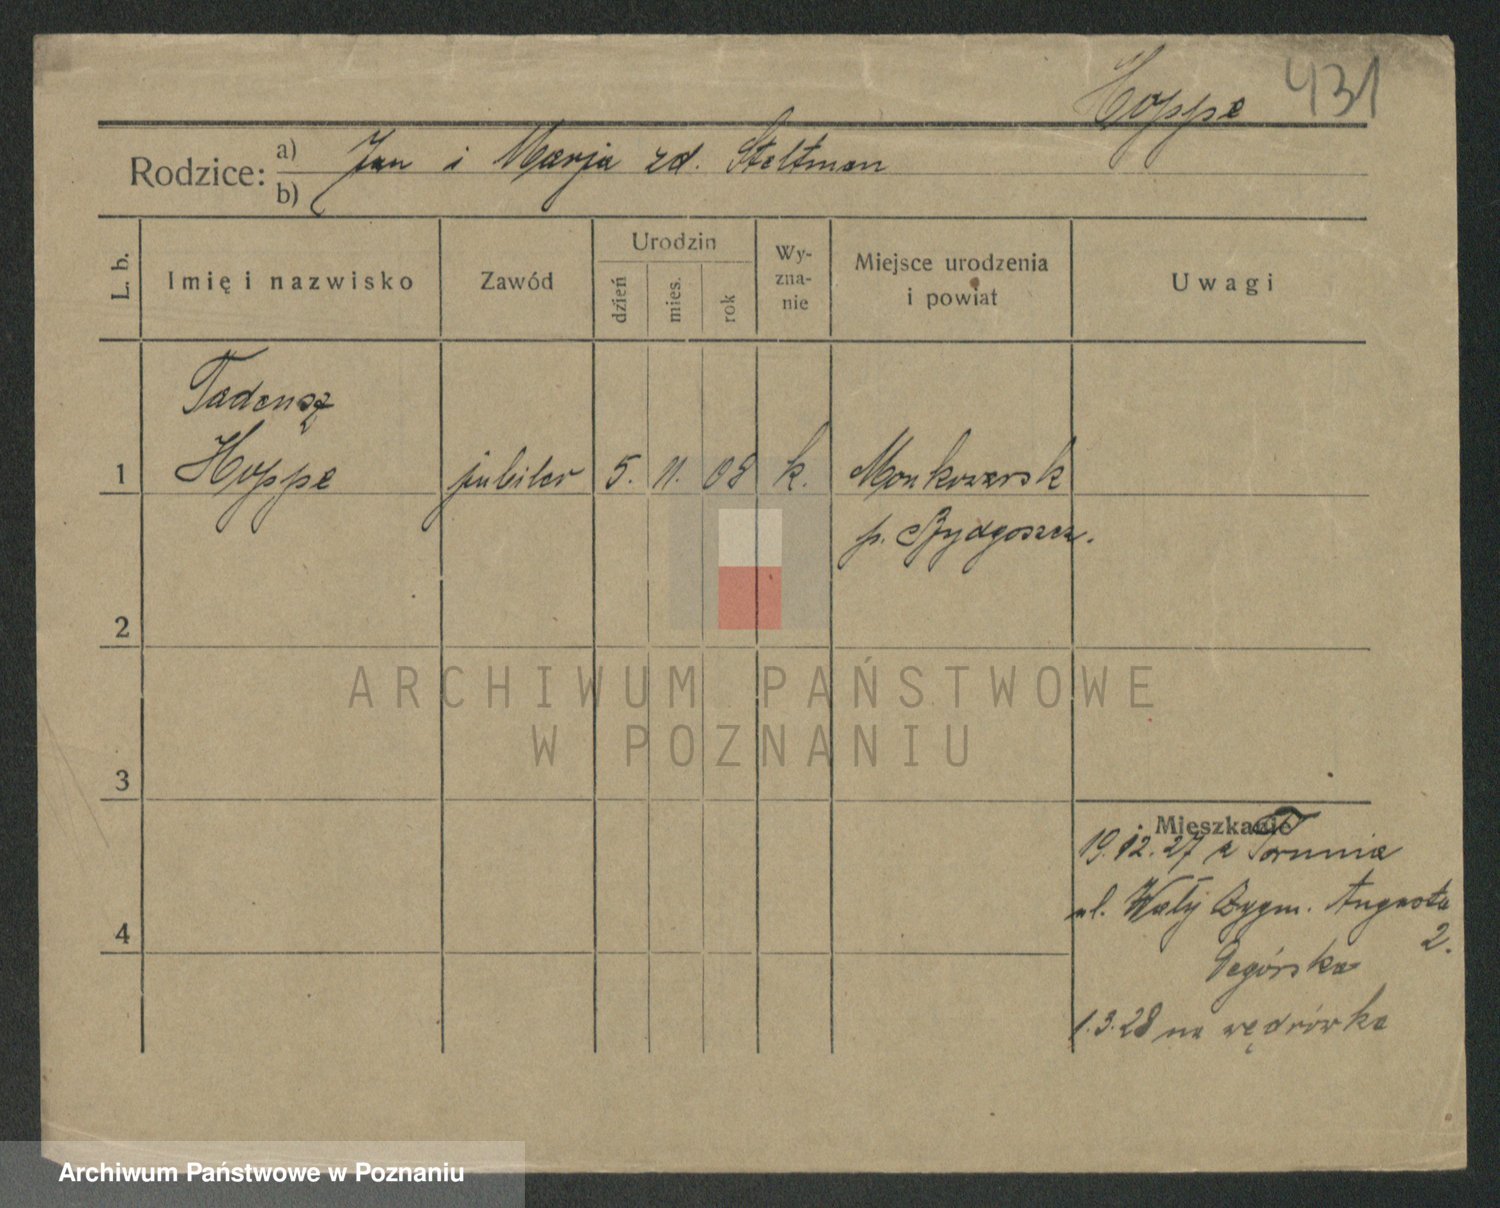 Hoppe 431
Rodzice: a) Jan i Marja zd. Steltman
b)
L. b. Imię i nazwisko Zawód Urodzin dzień mies. rok Wy-zna-nie Miejsce urodzenia i powiat Uwagi
Tadeusz
1 Hoppe jubiler 5. 11. 08 k. Monkowarsk
p. Bydgoszcz.
2
3
Mieszkanie
19.12.27 z Torunia
ul. Wały Zygm. Augusta
2.
4
1.3.28 na wędrówka
ARCHIWUM PAŃSTWOWE
W POZNANIU
Archiwum Państwowe w Poznaniu